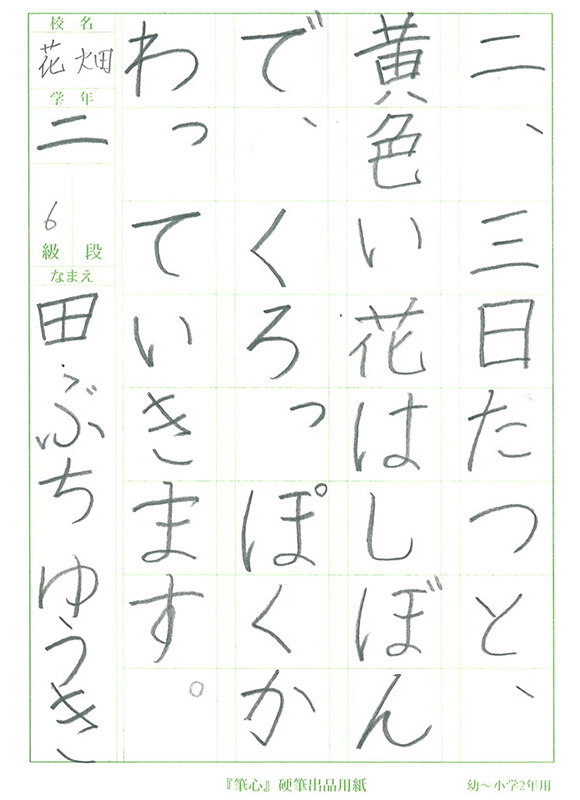 二、三日たつと、
黄色い花はしぼん
で、くろっぽくか
わっていきます。
校名
花畑
学年
二
6
級 段
なまえ
田ぶち ゆうき
『筆心』硬筆出品用紙
幼～小学2年用